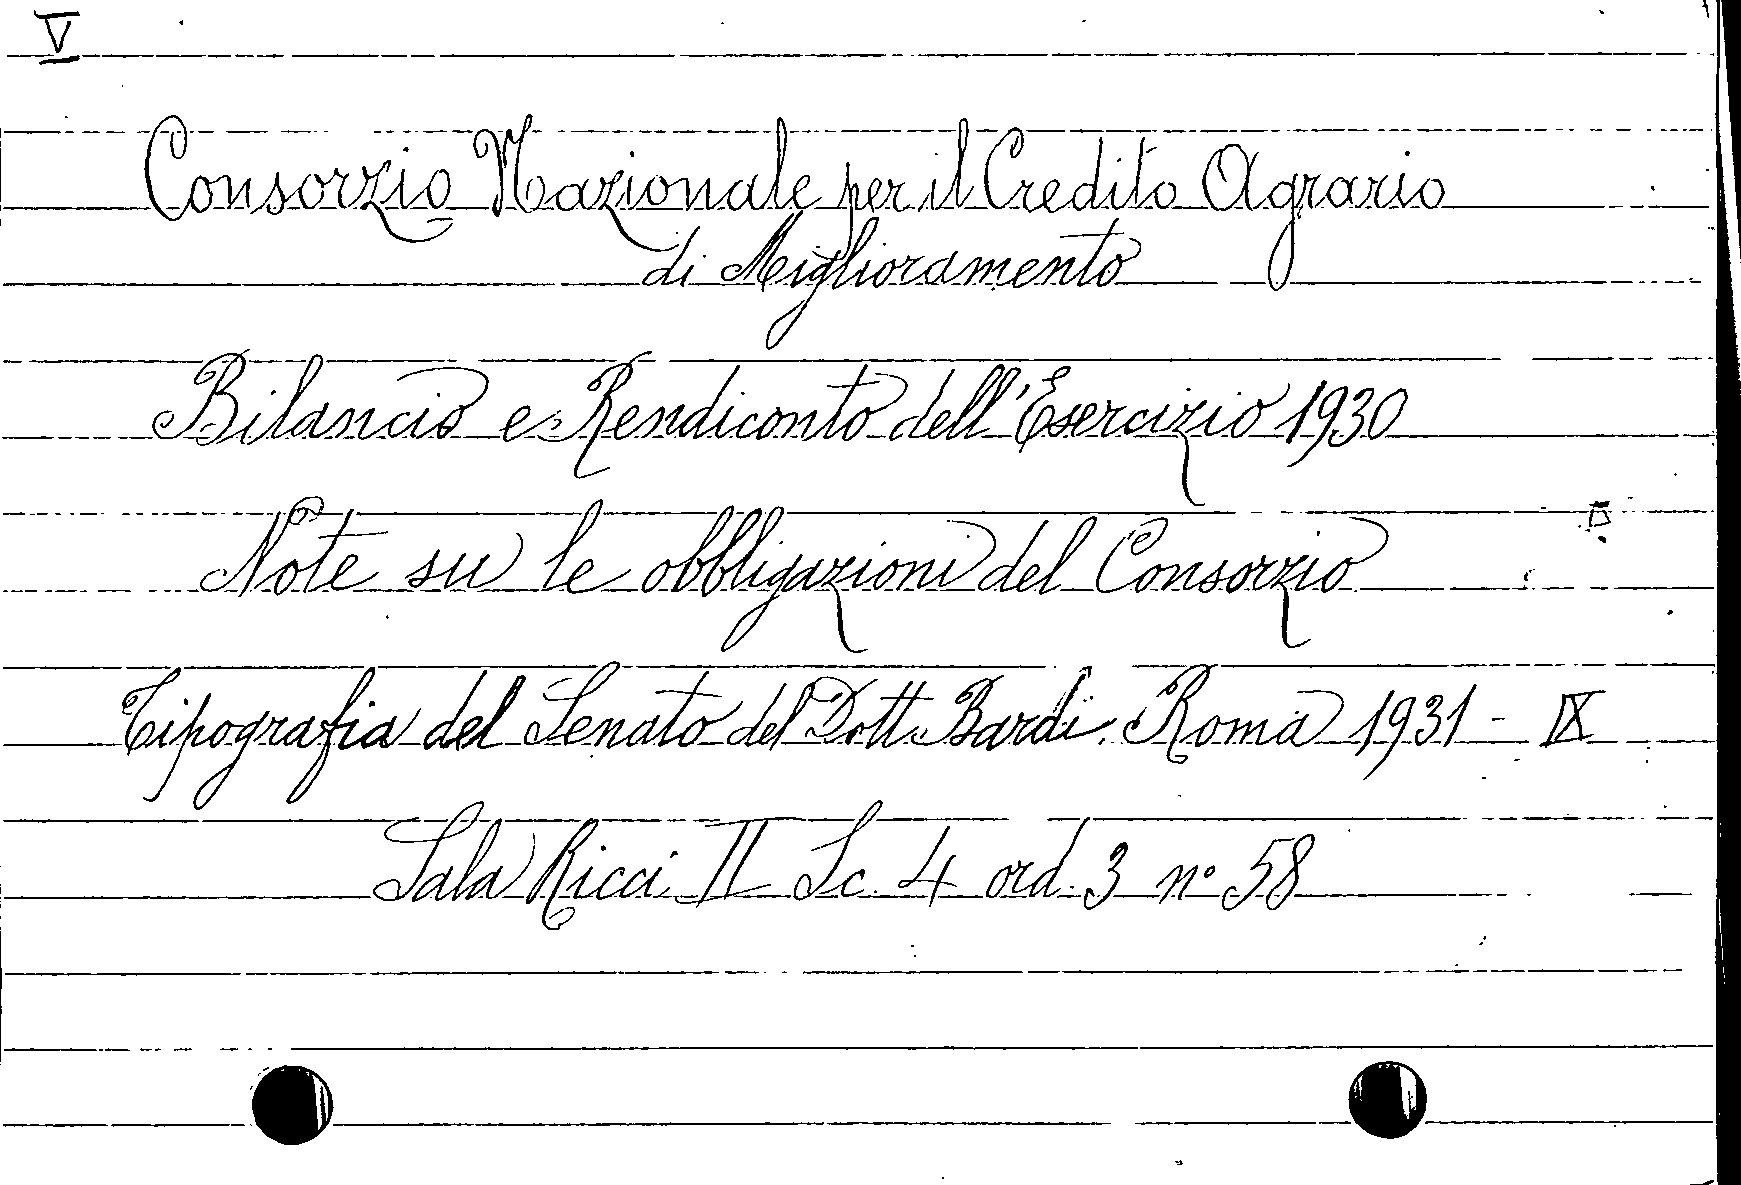 V
Consorzio Nazionale per il Credito Agrario
di Miglioramento
Bilancio e Rendiconto dell'Esercizio 1930
Note su le obbligazioni del Consorzio
Tipografia del Senato del Dott. Bardi. Roma 1931 - IX
Sala Ricci II Sc. 4 ord. 3 n° 58